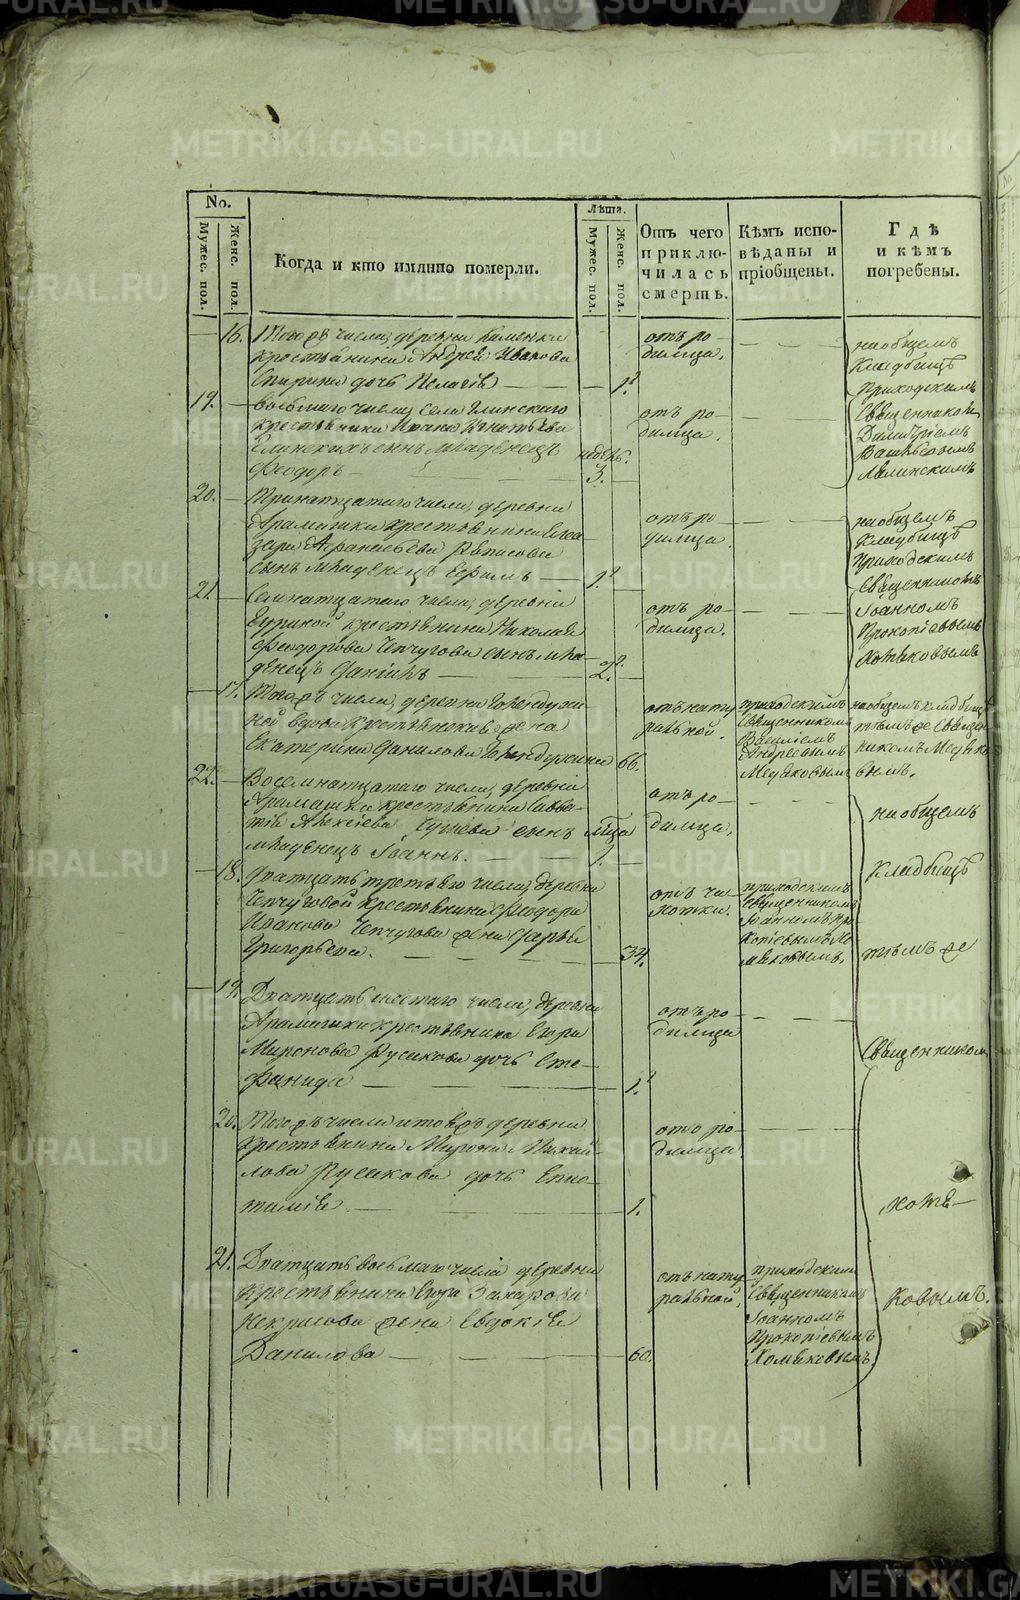 METRIKI.GASO-URAL.RU
No.
Мужес. пол.
Женс. пол.
Когда и кто имянно померли.
Лѣта.
Мужес. пол.
Женс. пол.
Отъ чего приключилась смерть.
Кѣмъ исповѣданы и пріобщены.
Гдѣ и кѣмъ погребены.
16. Того жъ числа, деревни Каменки
крестьянина Андрея Иванова
Спирина дочь Пелагія
1.
отъ родимца.
на общемъ
кладбищѣ
Приходскимъ
Священникомъ
Димитріемъ
19. восьмаго числа, села Глинскаго
крестьянина Ивана
Глинскихъ сынъ младенецъ
Феодоръ
недѣль.
3.
отъ родимца.
20. Тринатцатаго числа, деревни
Арамашки крестьянина
сынъ младенецъ Ефимъ
1.
отъ родимца.
на общемъ
кладбищѣ
Приходскимъ
Священникомъ
Іоанномъ
Прокопіевымъ
Хомяковымъ
21. Семнатцатаго числа, деревни
крестьянина Николая
Феодорова Чепчугова сынъ младенецъ Даніилъ
2.
отъ родимца.
17. Того жъ числа, деревни
вдова крестьянская жена
Екатерина Данилова
66.
отъ натуральной.
приходскимъ
Священникомъ
Василіемъ
Андреевымъ
на общемъ кладбищѣ
тѣмъ же Священникомъ
22. Восемнатцатаго числа, деревни
Арамашки крестьянина Савватія Алексіева сынъ
младенецъ Іоаннъ.
1.
отъ родимца,
на общемъ
кладбищѣ
тѣмъ же
Священникомъ
Хомяковымъ.
18. Дватцать третьяго числа, деревни
Чепчуговой крестьянина Феодора
Иванова Чепчугова жена Дарья
Григорьева.
34.
отъ чахотки.
приходскимъ
Священникомъ
Іоанномъ Прокопіевымъ Хомяковымъ.
19. Дватцать шестаго числа, деревни
Арамашки крестьянина Егора
Миронова Русакова дочь Стефанида
1.
отъ родимца
20. Того жъ числа и той жъ деревни
крестьянина Мирона Михайлова Русакова дочь
1.
отъ родимца
21. Дватцать восьмаго числа деревни
крестьянина Захарова
Некрасова жена Евдокія
Данилова
60.
отъ натуральной,
приходскимъ
Священникомъ
Іоанномъ
Прокопіевымъ
Хомяковымъ